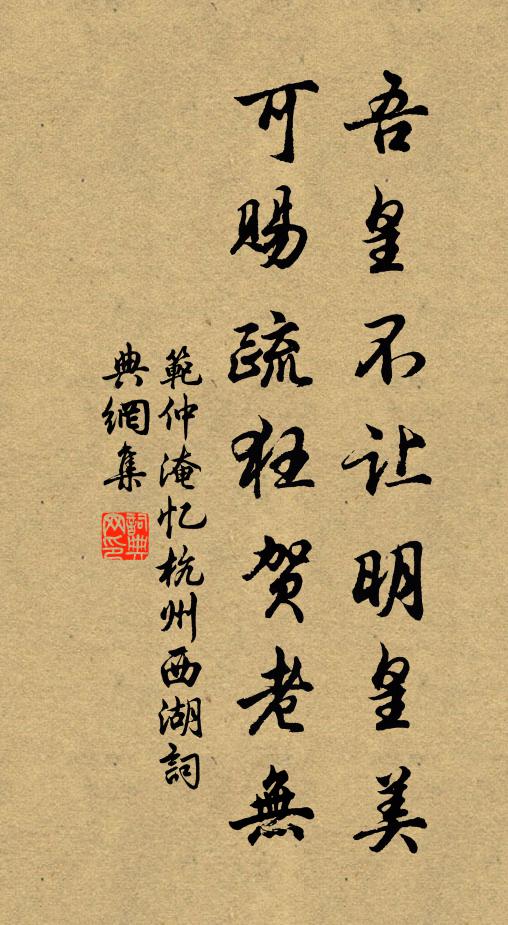 吾皇不让明皇美
可赐疏狂贺老無
範仲淹忆杭州西湖詞
典網集
詞典
网印